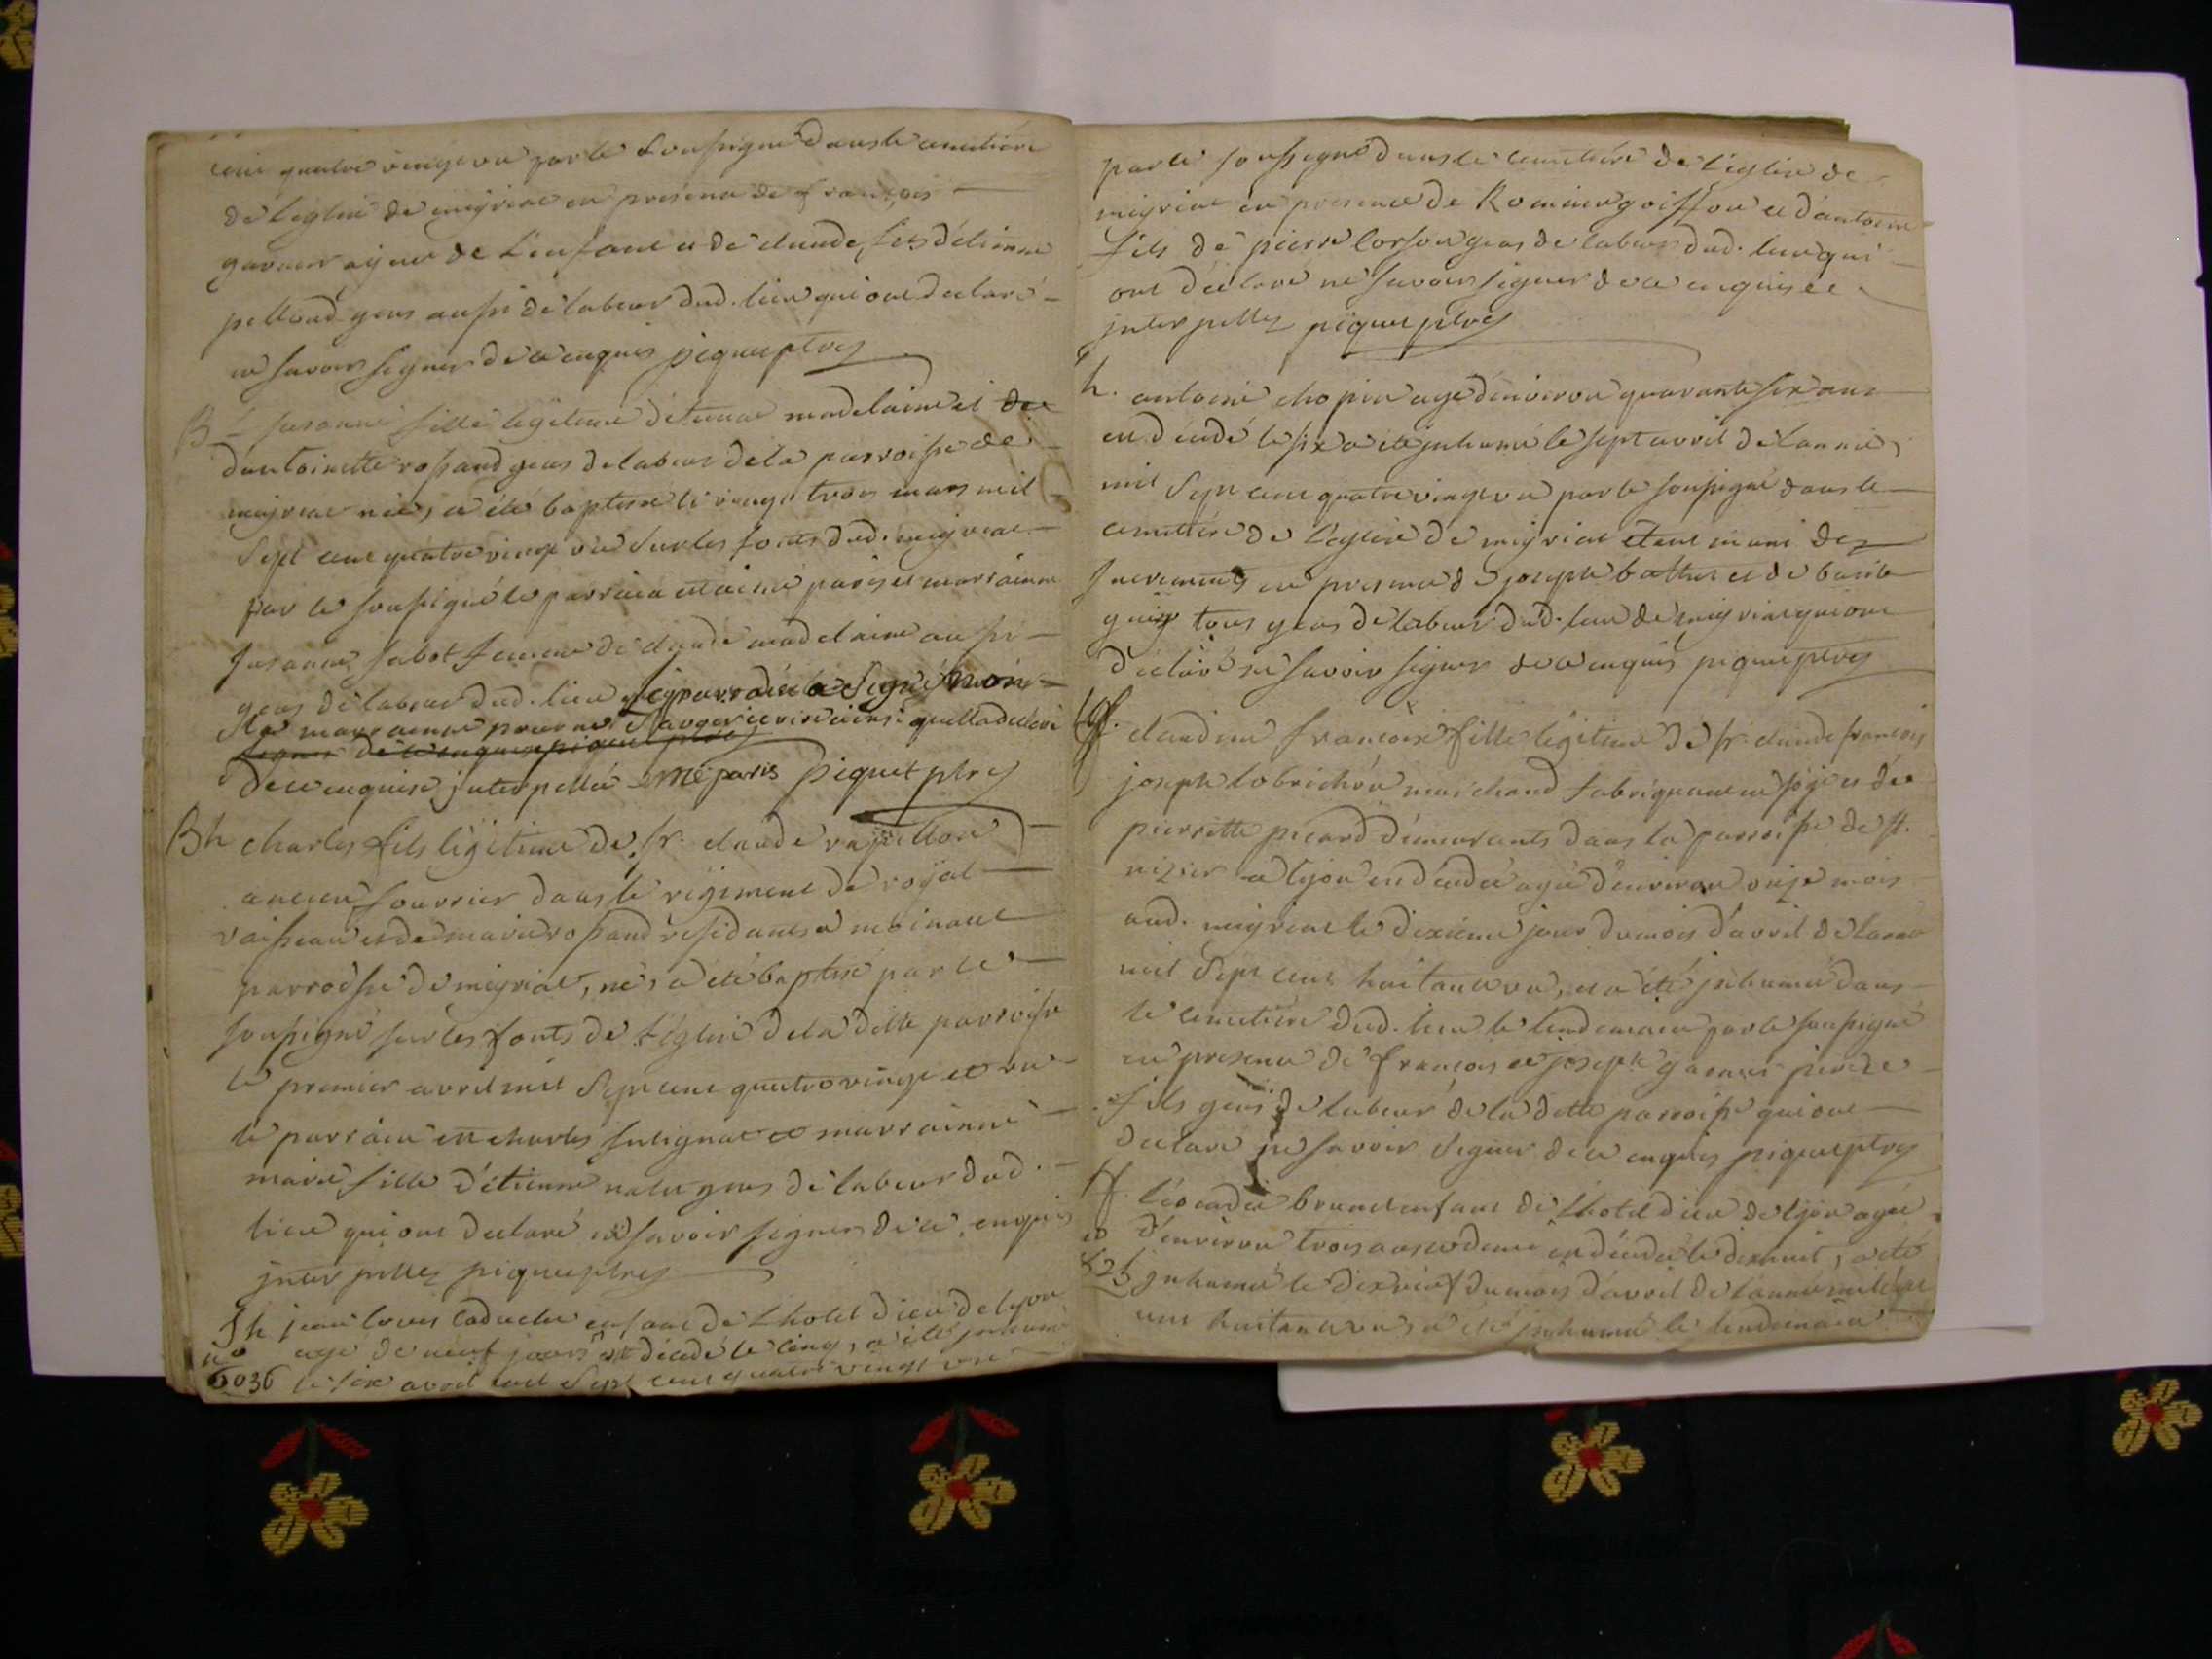 cent quatre vingt un par le soussigné dans le cimetière
de l'eglise de meyriat en presence de françois
garnier ayeur de l'enfant et de claude fils d'étienne
pelloud gens aussi de labeur dud. lieu qui ont declaré
ne savoir signer de ce enquis piquet ptre
B f susanne fille legitime d'etienne madelaine et de
d'antoinette rossand gens de labeur de la parroisse de
meyriat née, a été baptisée le vingt trois mars mil
sept cent quatre vingt un sur les fonts dud. meyriat
par le soussigné le parrain est aimé paris et marrainne
susanne sabot femme de claude madelaine aussi
gens de labeur dud. lieu le parrain a signé non
la marrainne pour ne savoir écrire ainsi qu'ella declaré
signer de ce enquis piquet ptre
de ce enquise interpellée Mé paris piquet ptre
Bh charles fils légitime de sr. claude rapillon
ancien fourrier dans le régiment de royal
vaisseau et de marie rossand residants a moinant
parroisse de meyriat, né, a été baptisé par le
soussigné sur les fonts de l'église de la ditte parroisse
le premier avril mil sept cent quatre vingt et un
le parrain est charles salignat et marrainne
marie fille d'étienne nalet gens de labeur dud.
lieu qui ont declaré ne savoir signer de ce enquis
interpellez piquet ptre
Sh jean louis caduclu enfant de l'hotel dieu de lyon
n° agé de neuf jours est décédé le cinq, a été inhumé
6036 le six avril mil sept cent quatre vingt un
par le soussigné dans le cimetière de l'église de
meyriat en presence de Romain goiffon et d'antoine
fils de pierre corson gens de labeur dud. lieu qui
ont déclaré ne savoir signer de ce enquis et
interpellez piquet ptre
h. antoine chopin agé d'environ quarante six ans
en décédé le six a été inhumé le sept avril de l'année
mil sept cent quatre vingt un par le soussigné dans le
cimetière de l'eglise de meyriat étant muni des
sacremens en presence de joseph battet et de basile
guy tous gens de labeur dud. lieu de meyriat qui ont
déclaré ne savoir signer de ce enquis piquet ptre
claudine françoise fille légitime de sr. claude françois
joseph lobrichon marchand fabriquant en soye et de
pierrette picard demeurants dans la parroisse de st.
nizier a lyon en décédée agée d'environ onze mois
aud. meyriat le dixième jour du mois d'avril de l'année
mil sept cent huitante un, et a été inhumée dans
le cimetière dud. lieu le lendemain par le soussigné
en presence de françois et joseph garnier pere et
fils gens de labeur de la ditte parroisse qui ont
declaré ne savoir signer de ce enquis piquet ptre
f. léocadie brunet enfant de l'hotel dieu de lyon agée
n° d'environ trois ans et demi en décédée le dixhuit, a été
inhumée le dixneuf du mois d'avril de l'année mil sept
cent huitante un, a été inhumée le lendemain